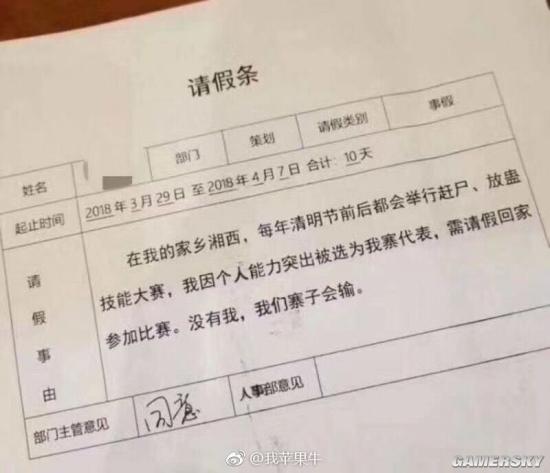 请假条
姓名 部门 策划 请假类别 事假
起止时间 2018年3月29日 至2018年4月7日 合计:10天
请假事由
在我的家乡湘西,每年清明节前后都会举行赶尸、放蛊
技能大赛,我因个人能力突出被选为我寨代表,需请假回家
参加比赛。没有我,我们寨子会输。
部门主管意见 同意 人事部意见
@我苹果牛
GAMERSKY